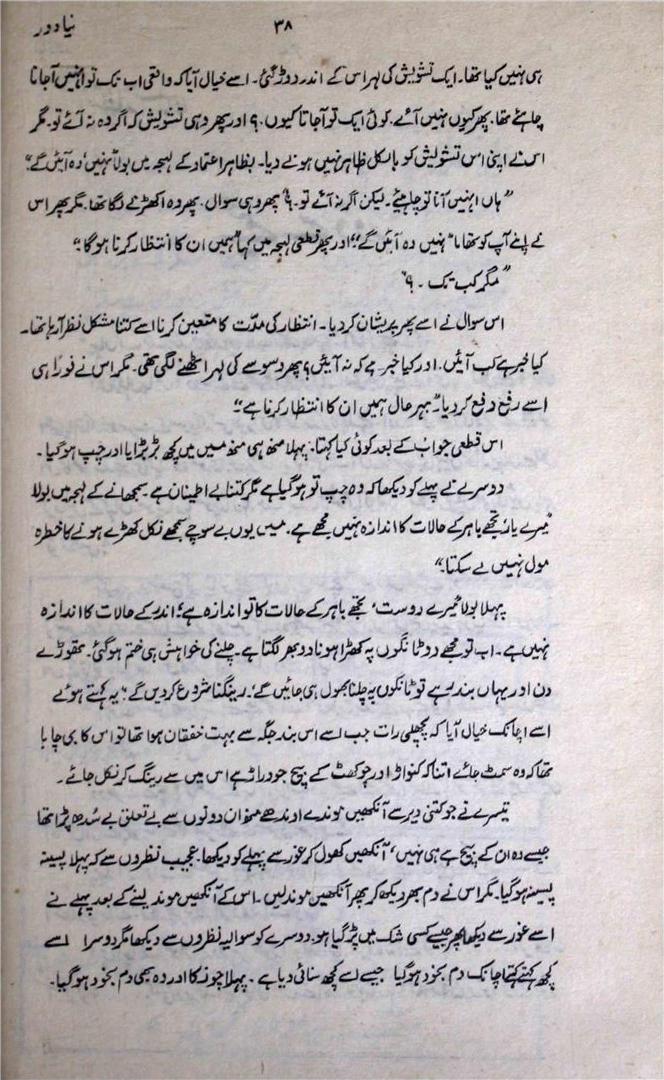 نیا دور
۳۸
ہی نہیں کیا تھا۔ ایک تشویش کی لہر اس کے اندر دوڑ گئی۔ اسے خیال آیا کہ واقعی اب تک تو انہیں آجانا
چاہئے تھا۔ پھر کیوں نہیں آئے۔ کوئی ایک تو آجاتا کیوں۔ ؟ اور پھر وہی تشویش کہ اگر وہ نہ آئے تو۔ مگر
اس نے اپنی اس تشویش کو بالکل ظاہر نہیں ہونے دیا۔ بظاہر اعتماد کے لہجہ میں بولا "نہیں' وہ آئیں گے"
"ہاں انہیں آنا تو چاہئیے۔ لیکن اگر نہ آئے تو۔ ؟" پھر وہی سوال۔ پھر وہ اکھڑنے لگا تھا۔ مگر پھر اس
نے اپنے آپ کو تھاما "نہیں وہ آئیں گے" اور پھر قطعی لہجہ میں کہا "ہمیں ان کا انتظار کرنا ہوگا۔"
"مگر کب تک ۔ ؟"
اس سوال نے اسے پھر پریشان کر دیا۔ انتظار کی مدّت کا متعین کرنا اسے کتنا مشکل نظر آرہا تھا۔
کیا خبر ہے کب آئیں۔ اور کیا خبر ہے کہ نہ آئیں ؟ پھر وسوسے کی لہر اٹھنے لگی تھی۔ مگر اس نے فوراً ہی
اسے رفع دفع کر دیا۔ "بہر حال ہمیں ان کا انتظار کرنا ہے۔"
اس قطعی جواب کے بعد کوئی کیا کہتا۔ پہلا منھ ہی منھ میں میں کچھ بڑبڑایا اور چپ ہوگیا۔
دوسرے نے پہلے کو دیکھا کہ وہ چپ تو ہوگیا ہے مگر کتنا بے اطمینان ہے۔ سمجھانے کے لہجہ میں بولا
"میرے یار' تجھے باہر کے حالات کا اندازہ نہیں مجھے ہے۔ میں یوں بے سوچے سمجھے نکل کھڑے ہونے کا خطرہ
مول نہیں لے سکتا۔"
پہلا بولا "میرے دوست' تجھے باہر کے حالات کا تو اندازہ ہے' اندر کے حالات کا اندازہ
نہیں ہے۔ اب تو مجھے دو ٹانگوں پہ کھڑا ہونا دوبھر لگتا ہے۔ چلنے کی خواہش ہی ختم ہوگئی۔ تھوڑے
دن اور یہاں بند رہے تو ٹانگوں پہ چلنا بھول ہی جائیں گے۔ رینگنا شروع کر دیں گے" یہ کہتے ہوئے
اسے اچانک خیال آیا کہ پچھلی رات جب اسے اس بند جگہ سے بہت خفقان ہوا تھا تو اس کا جی چاہا
تھا کہ وہ سمٹ جائے اتنا کہ کنواڑ اور چوکھٹ کے بیچ جو دراڑ ہے اس میں سے رینگ کر نکل جائے۔
تیسرے نے جو کتنی دیر سے آنکھیں موندے اوندھے منھ ان دونوں سے بے تعلق بے سُدھ پڑا تھا
جیسے وہ ان کے بیچ ہے ہی نہیں' آنکھیں کھول کر غور سے پہلے کو دیکھا۔ عجیب نظروں سے کہ پہلا پسینہ
پسینہ ہوگیا۔ مگر اس نے دم بھر دیکھ کر پھر آنکھیں موند لیں۔ اس کے آنکھیں موند لینے کے بعد پہلے نے
اسے غور سے دیکھا پھر جیسے کسی شک میں پڑ گیا ہو۔ دوسرے کو سوالیہ نظروں سے دیکھا مگر دوسرا اسے
کچھ کہتے کہتے اچانک دم بخود ہوگیا جیسے اسے کچھ سنائی دیا ہے۔ پہلا چونکا اور وہ بھی دم بخود ہوگیا۔